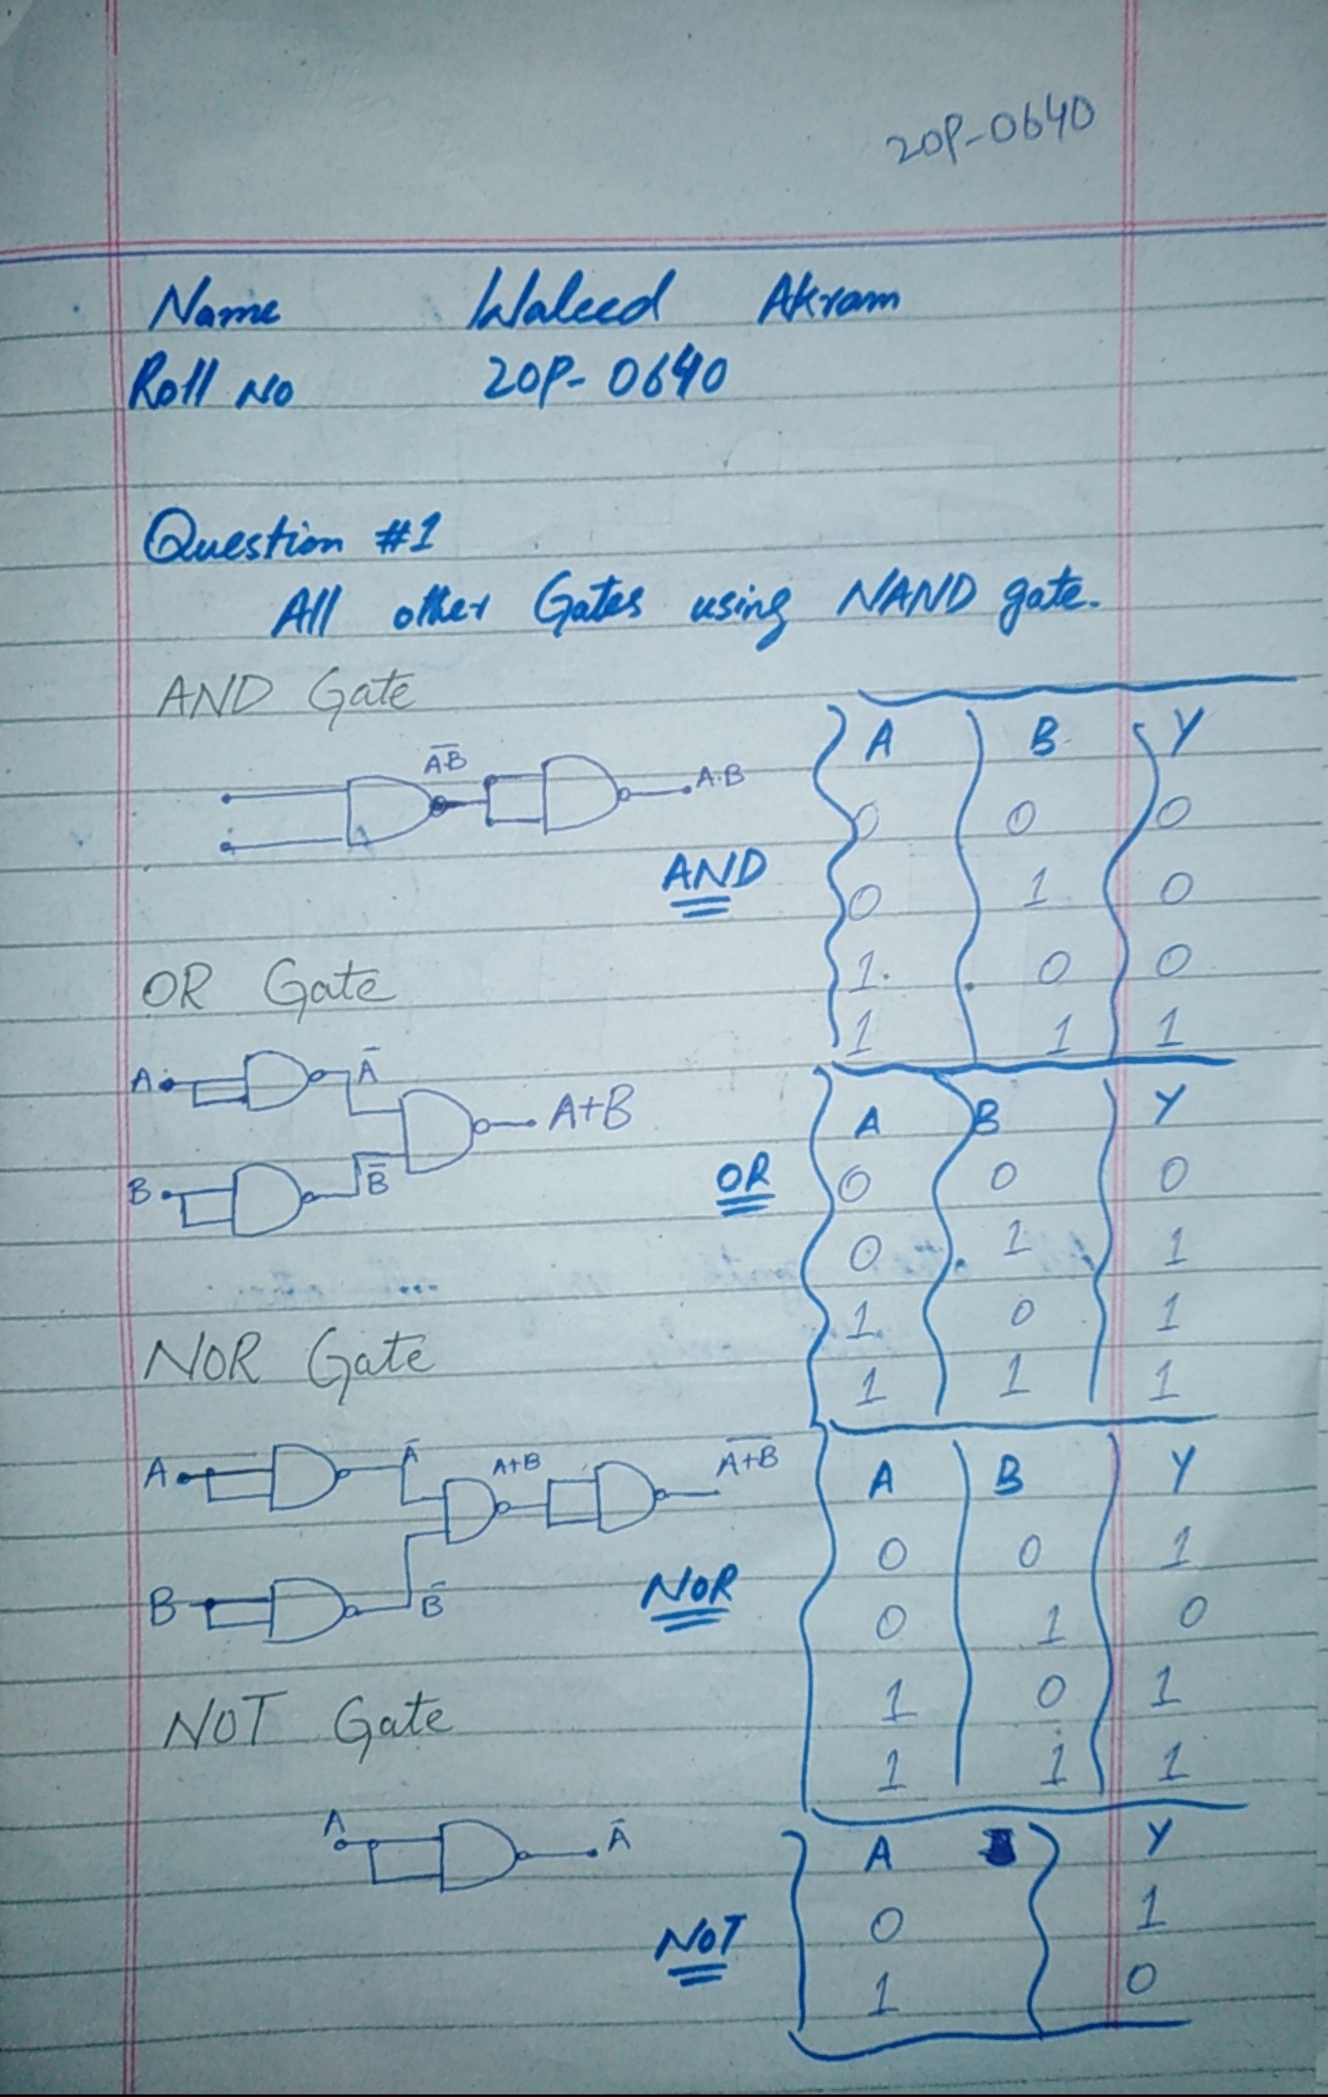 20P-0640
Name Waleed Akram
Roll No 20P-0640
Question #1
All other Gates using NAND gate.
AND Gate
A̅B̅ A.B
AND
A B Y
0 0 0
0 1 0
1 0 0
1 1 1
OR Gate
A A̅
A+B
B B̅
OR
A B Y
0 0 0
0 1 1
1 0 1
1 1 1
NOR Gate
A A̅ A+B A̅+̅B̅
B B̅
NOR
A B Y
0 0 1
0 1 0
1 0 1
1 1 1
NOT Gate
A A̅
NOT
A Y
0 1
1 0